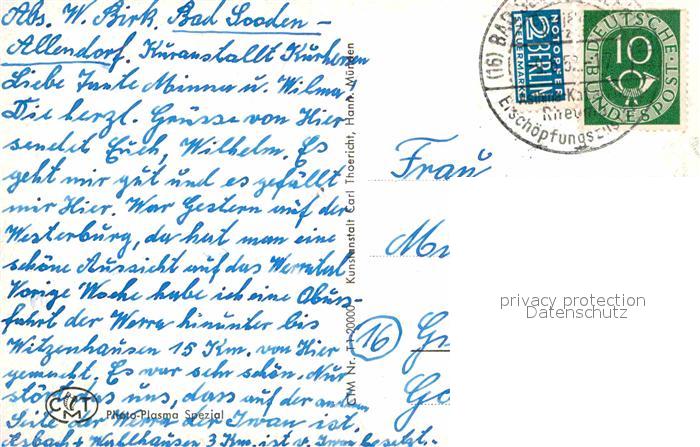 Abs. W. Birk. Bad Sooden-
Allendorf. Kuranstallt Kurhessen
Liebe Tante Minna u. Wilma!
Die herzl. Grüsse von Hier
sendet Euch, Wilhelm. Es
geht mir gut und es gefällt
mir Hier. War Gestern auf der
Westerburg, da hat man eine
schöne Aussicht auf das Werratal
Vorige Woche habe ich eine Obuss-
fahrt der Werra hinunter bis
Witzenhausen 15 Km. von Hier
gemacht. Es war sehr schön. Nur
störte das uns, dass auf der andern
Seite der Werra der Iwan ist.
Asbach + Wahlhausen 3 Km. ist v. Iwan besetzt.-
CTM
Photo-Plasma Spezial
CTM Nr. T 1-20000 Kunstanstalt Carl Thoericht, Hann. Münden
NOTOPFER
2 BERLIN
STEUERMARKE
DEUTSCHE
10
BUNDESPOST
(16) BAD
Erschöpfungszu
Frau
16
privacy protection
Datenschutz